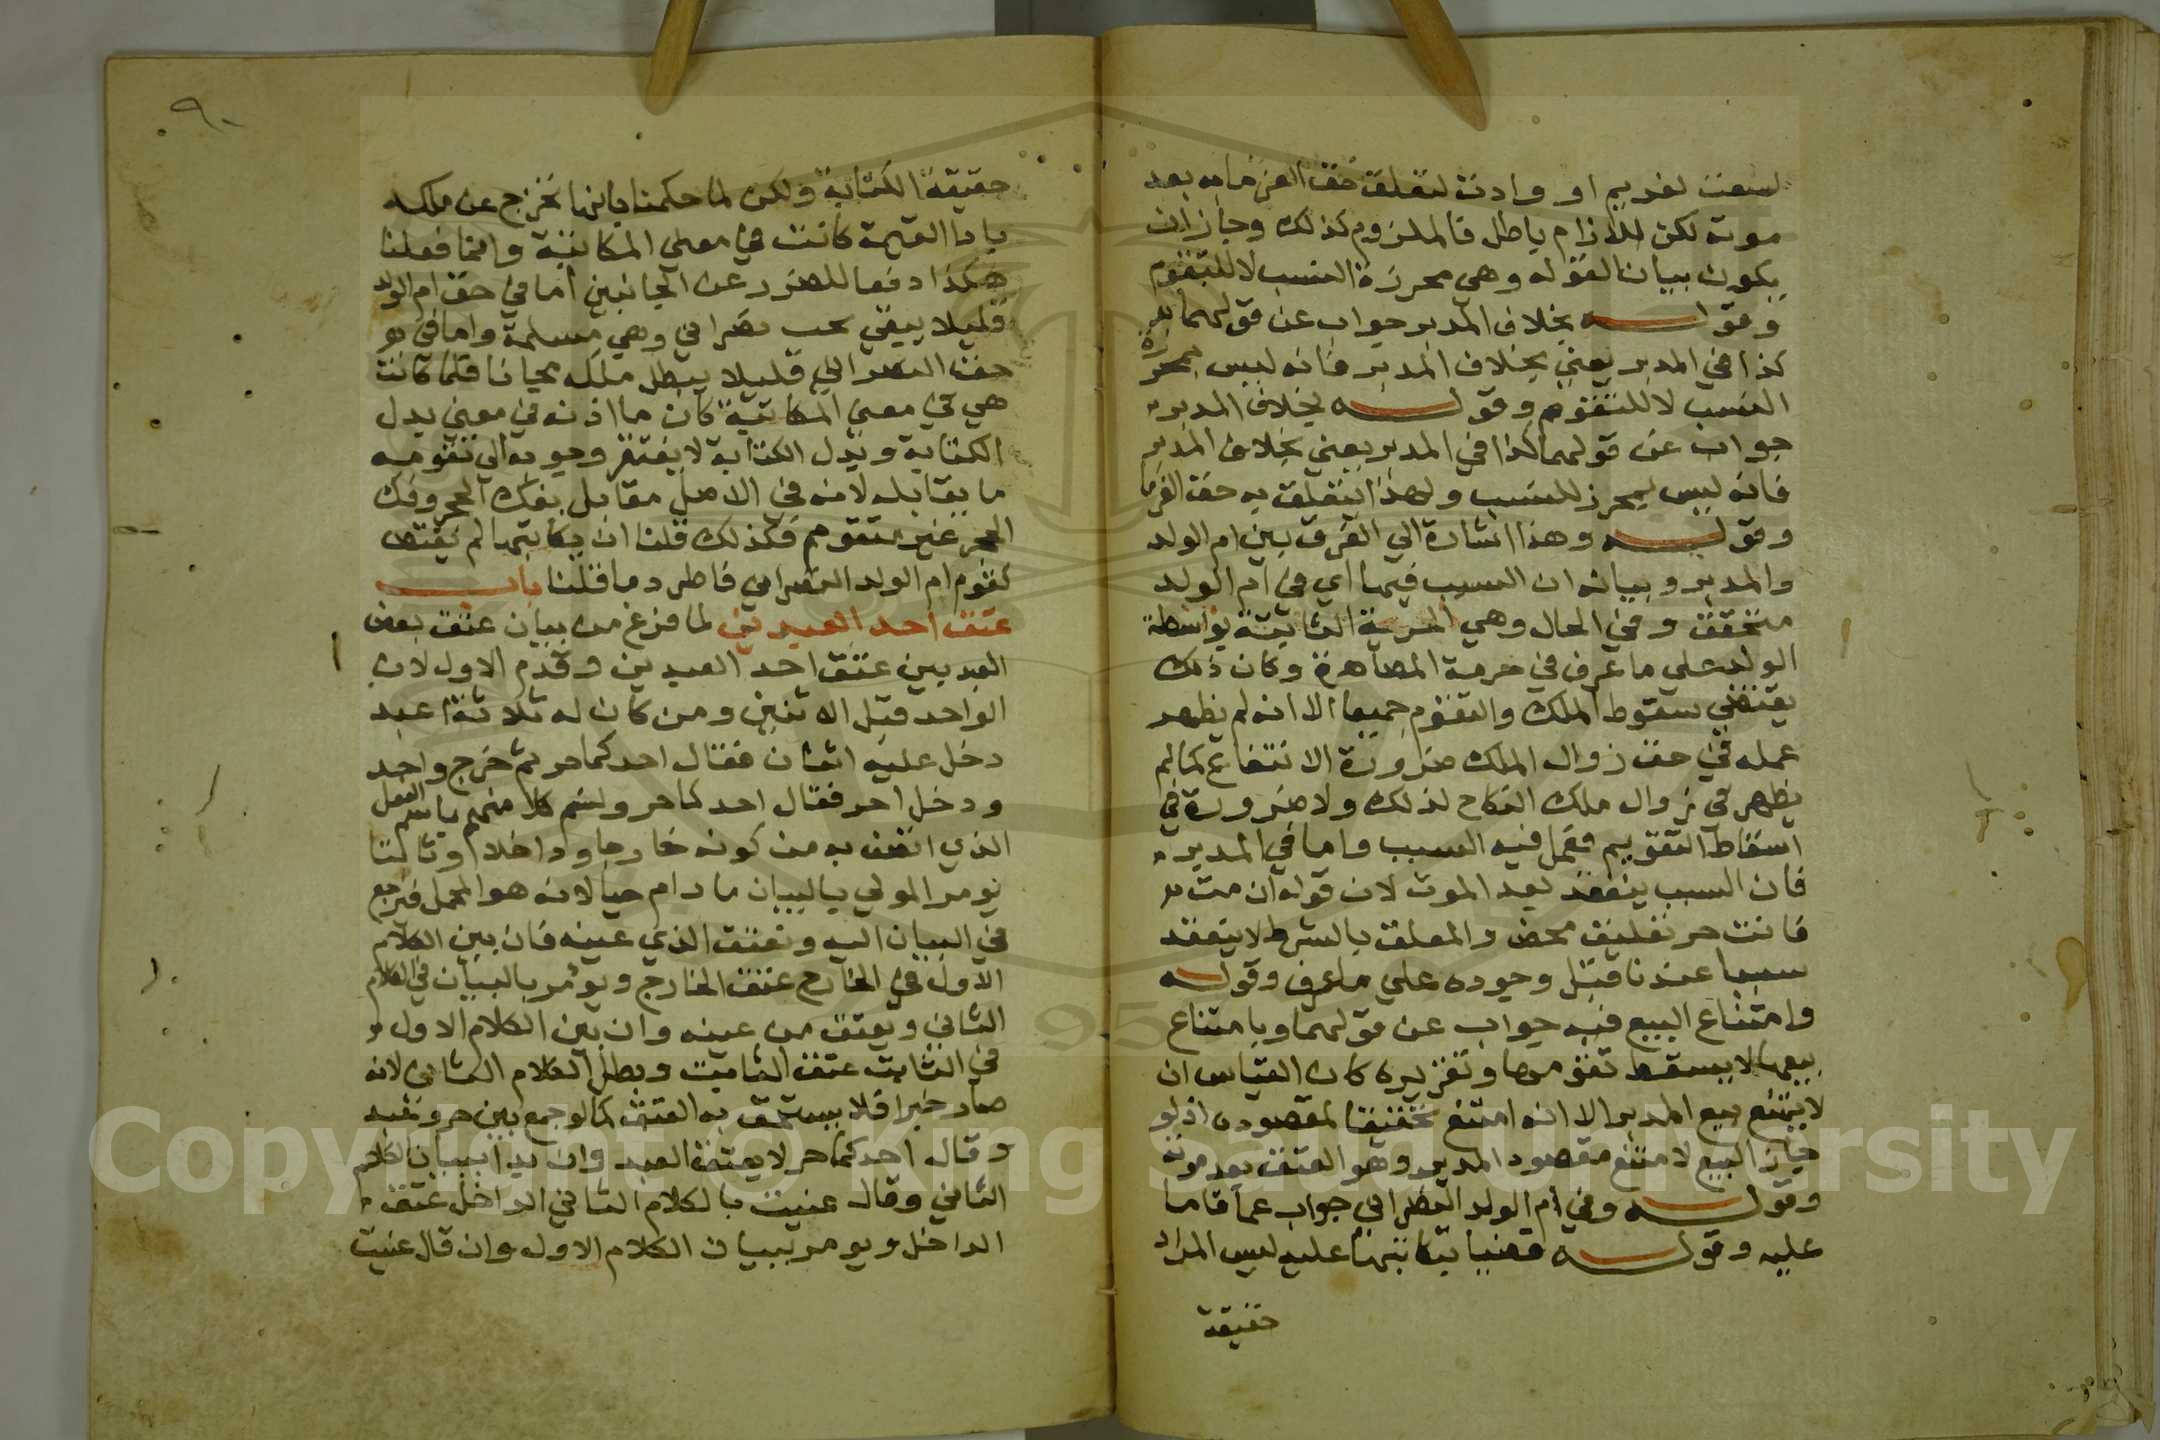 لسعت لغريم او وارث لتعلق حق الغرماء به بعد
موته لكن اللازم باطل فالملزوم كذلك وجاز ان
يكون بيانا لقوله وهي محرزة النسب لا للتقوم
وقولـــه بخلاف المدبر جواب عن قولهما
كذا في المدبر يعني بخلاف المدبر فانه ليس بمحرز
النسب لا للتقوم وقولـــه بخلاف المدبر
جواب عن قولهما كذا في المدبر يعني بخلاف المدبر
فانه ليس بمحرز للنسب ولهذا يتعلق به حق الغرما
وقولـــه وهذا اشارة الي الفرق بين ام الولد
والمدبر وبيانه ان السبب فيها اي في ام الولد
متحقق وفي الحال وهي الحرية الثابتة بواسطة
الولد علي ما عرف في حرمة المصاهرة وكان ذلك
يقتضي سقوط الملك والتقوم جميعا الا انه لم يظهر
عمله في حق زوال الملك ضرورة الانتفاع كما لم
يظهر في زوال ملك النكاح لذلك ولا ضرورة في
اسقاط التقويم فعمل فيه السبب واما في المدبر
فان السبب ينعقد بعد الموت لان قوله ان مت
فانت حر تعليق محض والمعلق بالشرط لا ينعقد
سببا عندنا قبل وجوده علي ما عرف وقولـــه
وامتناع البيع فيه جواب عن قولهما وبامتناع
بيعها لا يسقط تقومها وتقريره كان القياس ان
لا يمتنع بيع المدبر الا انه امتنع تحقيقا لمقصوده اذ لو
جاز البيع لامتنع مقصود المدبر وهو العتق بعد موته
وقولـــه وفي ام الولد النصراني جواب عما قاسا
عليه وقولـــه قضينا بتكاتبها عليه ليس المراد
حقيقة
٩٠
حقيقة الكتابة ولكن لما حكمنا بانها تخرج عن ملكه
بادا القيمة كانت في معني المكاتبة وانما فعلنا
هكذا دفعا للضرر عن الجانبين اما في حق ام الولد
فليلا يبقي تحت نصراني وهي مسلمة واما في
حق النصراني فليلا يبطل ملكه مجانا فلما كانت
هي في معني المكاتبة كان ما ادته في معني بدل
الكتابة وبدل الكتابة لا يفتقر وجوبه الي تقومه
ما يقابله لانه في الاصل مقابل بفك الحجر وفك
الحجر غير متقوم فكذلك قلنا ان بكاتبها لم يقتض
تقوم ام الولد النصراني فاطرد ما قلنا بابـــ
عتق احد العبدين لما فرغ من بيان عتق بعض
العبد بين عتق احد العبدين وقدم الاول لان
الواحد قبل الاثنين ومن كان له ثلاثة اعبد
دخل عليه اثنان فقال احدكما حر ثم خرج واحد
ودخل اخر فقال احدكما حر ولنسم كلا منهم باسم الفعل
الذي اتصف به من كونه خارجا وداخلا وثابتا
يومر المولي بالبيان ما دام حيا لانه هو المجمل فيرجع
في البيان اليه ويعتق الذي عينه فان بين الكلام
الاول في الخارج عتق الخارج ويؤمر بالبيان في الكلام
الثاني ويعتق من عينه وان بين الكلام الاول
في الثابت عتق الثابت وبطل الكلام الثاني لانه
صار خبرا فلا يستحق به العتق كما لو جمع بين حر وعبد
وقال احدكما حر لا يعتق العبد وان بدا ببيان الكلام
الثاني وقال عنيت بالكلام الثاني الداخل عتق
الداخل ويومر ببيان الكلام الاول وان قال عنيت
Copyright © King Saud University